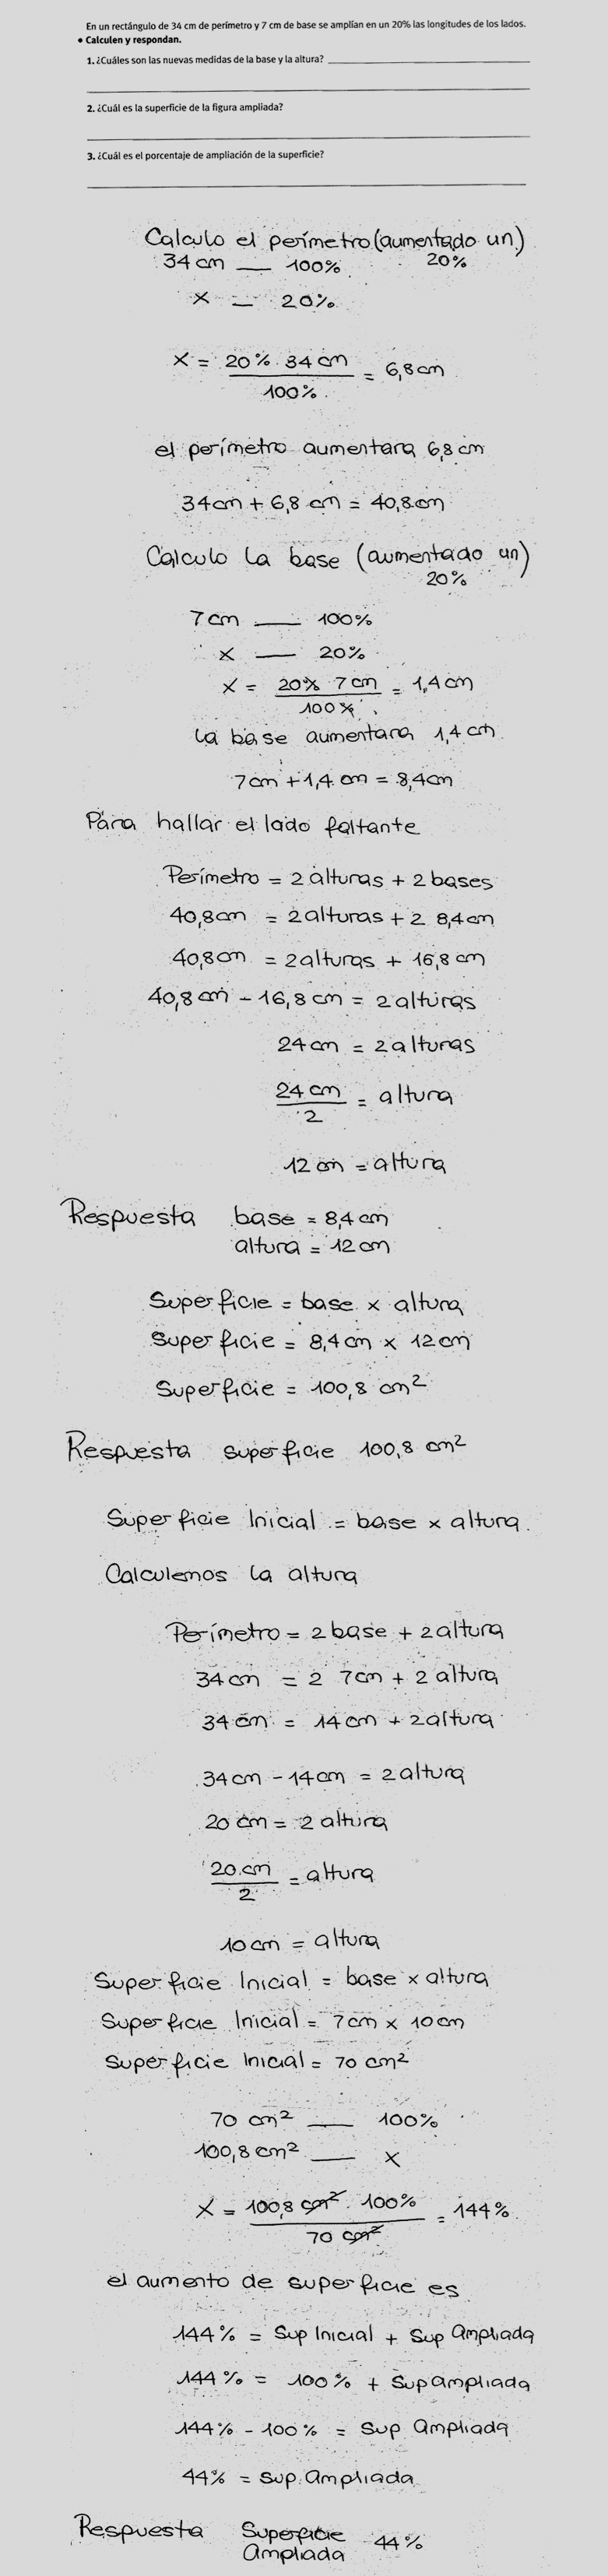 En un rectángulo de 34 cm de perímetro y 7 cm de base se amplían en un 20% las longitudes de los lados.
• Calculen y respondan.
1. ¿Cuáles son las nuevas medidas de la base y la altura?
2. ¿Cuál es la superficie de la figura ampliada?
3. ¿Cuál es el porcentaje de ampliación de la superficie?
Calculo el perímetro (aumentado un)
34 cm — 100% 20%
x — 20%
x = 20% . 34 cm / 100% = 6,8 cm
el perímetro aumentara 6,8 cm
34cm + 6,8 cm = 40,8 cm
Calculo la base (aumentado un)
20%
7 cm — 100%
x — 20%
x = 20% 7 cm / 100% = 1,4 cm
la base aumentara 1,4 cm
7cm + 1,4 cm = 8,4cm
Para hallar el lado faltante
Perímetro = 2 alturas + 2 bases
40,8cm = 2 alturas + 2 8,4cm
40,8cm = 2 alturas + 16,8 cm
40,8 cm - 16,8 cm = 2 alturas
24 cm = 2 alturas
24 cm / 2 = altura
12 cm = altura
Respuesta base = 8,4 cm
altura = 12 cm
Superficie = base x altura
Superficie = 8,4 cm x 12 cm
Superficie = 100,8 cm²
Respuesta superficie 100,8 cm²
Superficie Inicial = base x altura
Calculemos la altura
Perímetro = 2 base + 2 altura
34 cm = 2 7cm + 2 altura
34 cm = 14 cm + 2 altura
34 cm - 14 cm = 2 altura
20 cm = 2 altura
20 cm / 2 = altura
10 cm = altura
Superficie Inicial = base x altura
Superficie Inicial = 7cm x 10 cm
Superficie Inicial = 70 cm²
70 cm² — 100%
100,8 cm² — x
x = 100,8 cm² . 100% / 70 cm² = 144%
el aumento de superficie es
144% = Sup Inicial + Sup Ampliada
144% = 100% + Sup Ampliada
144% - 100% = Sup Ampliada
44% = Sup. Ampliada
Respuesta Superficie 44%
Ampliada